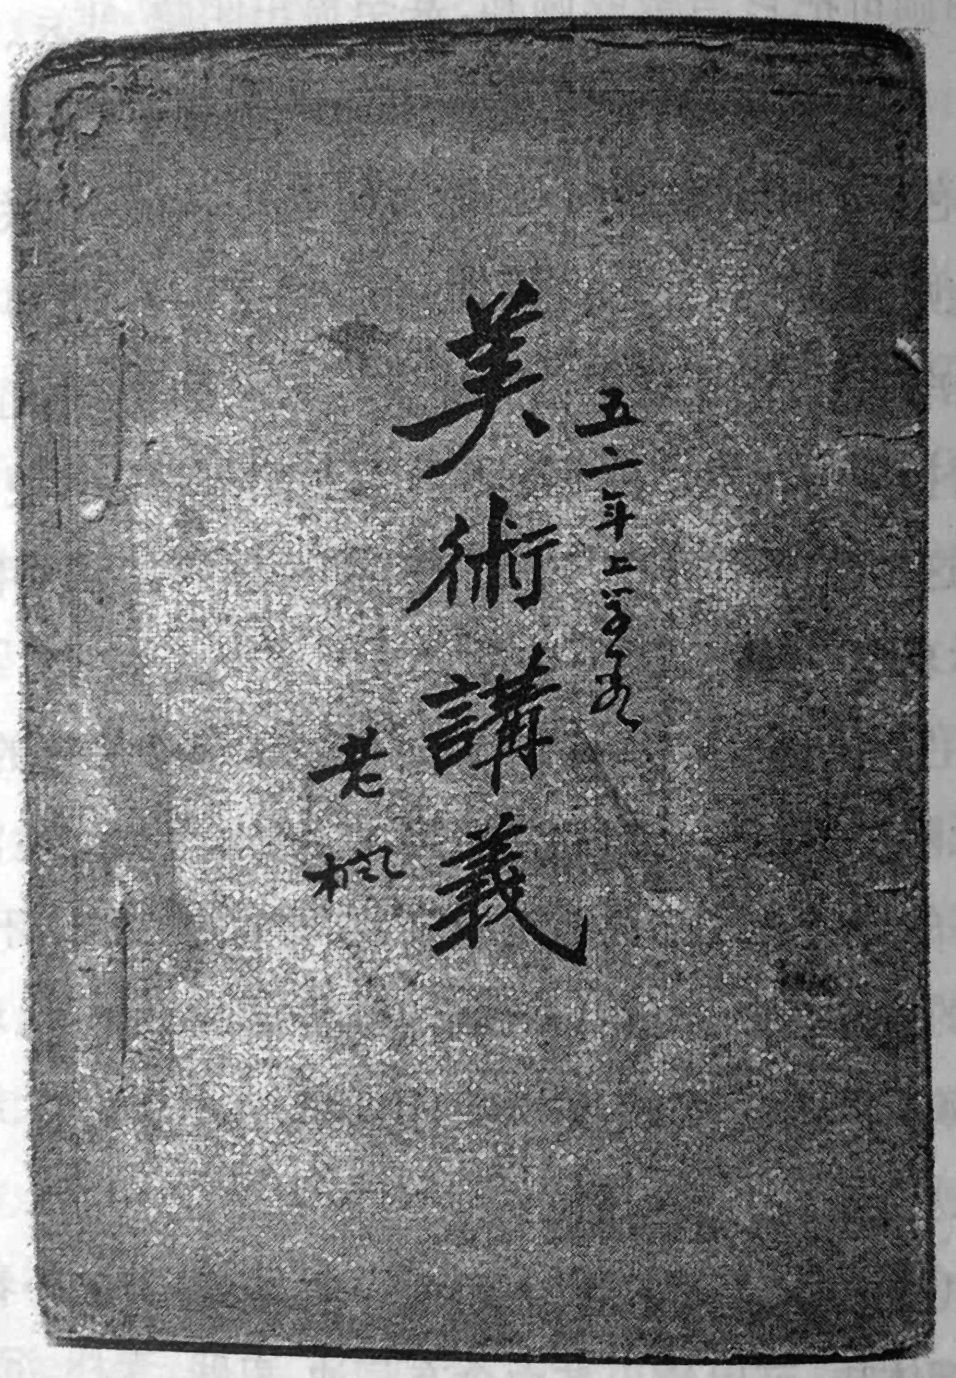 五二年上学期
美術講義
老枫